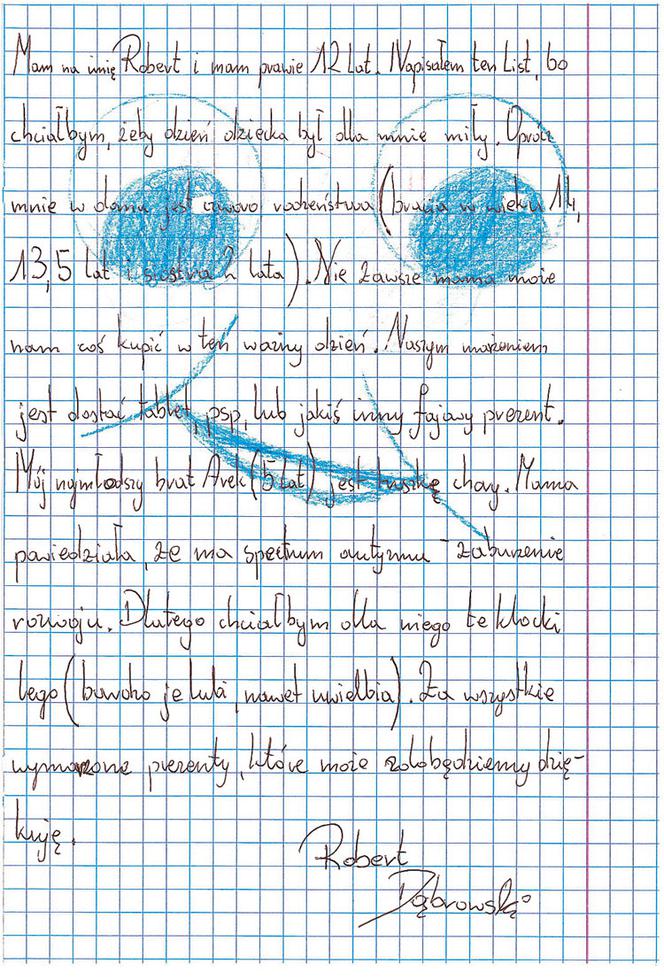 Mam na imię Robert i mam prawie 12 lat. Napisałem ten list, bo
chciałbym, żeby dzień dziecka był dla mnie miły. Oprócz
mnie w domu jest czworo rodzeństwa (bracia w wieku 14,
13, 5 lat i siostra 2 lata). Nie zawsze mama może
nam coś kupić w ten ważny dzień. Naszym marzeniem
jest dostać tablet, psp, lub jakiś inny fajawy prezent.
Mój najmłodszy brat Arek (5 lat) jest troszkę chory. Mama
powiedziała, że ma spectrum autyzmu - zaburzenie
rozwoju. Dlatego chciałbym dla niego te klocki
lego (bardzo je lubi, nawet uwielbia). Za wszystkie
wymarzone prezenty, które może zdobędziemy dzię-
kuję.
Robert
Dąbrowski